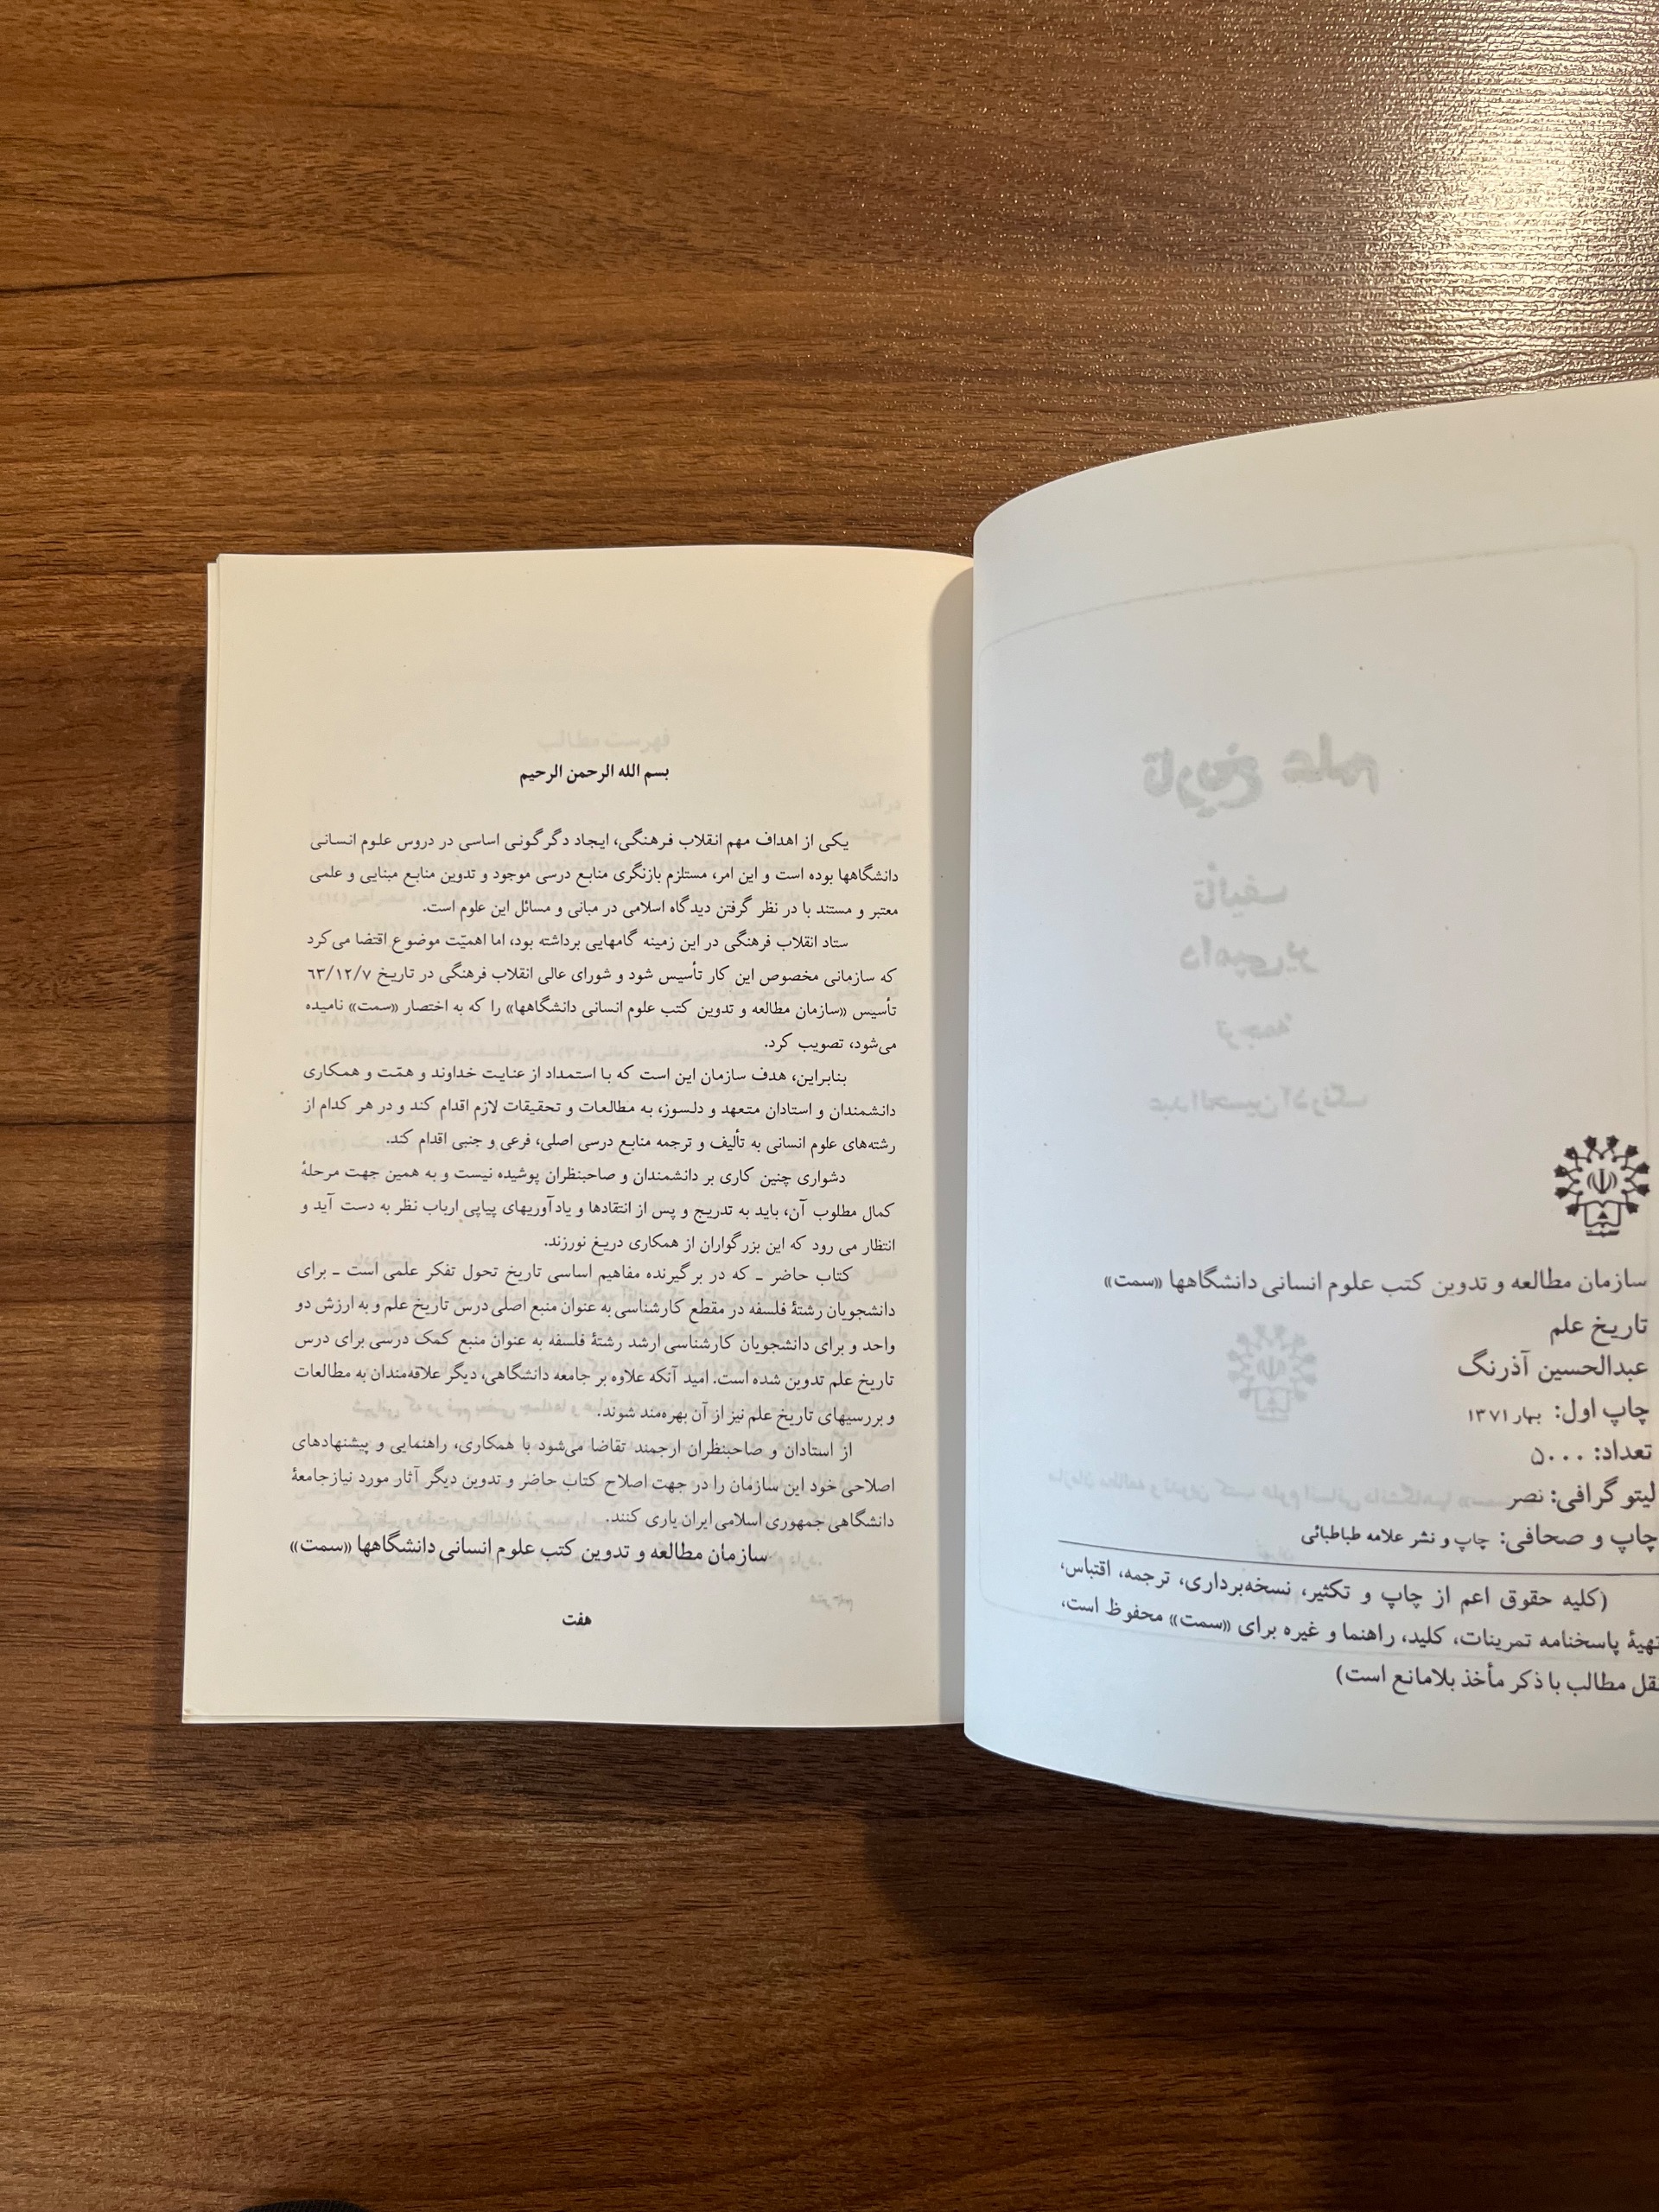 سازمان مطالعه و تدوین کتب علوم انسانی دانشگاهها «سمت»
تاریخ علم
عبدالحسین آذرنگ
چاپ اول: بهار ۱۳۷۱
تعداد: ۵۰۰۰
لیتوگرافی: نصر
چاپ و صحافی: چاپ و نشر علامه طباطبائی
(کلیه حقوق اعم از چاپ و تکثیر، نسخه‌برداری، ترجمه، اقتباس،
تهیهٔ پاسخنامه تمرینات، کلید، راهنما و غیره برای «سمت» محفوظ است،
نقل مطالب با ذکر مأخذ بلامانع است)
بسم الله الرحمن الرحیم
یکی از اهداف مهم انقلاب فرهنگی، ایجاد دگرگونی اساسی در دروس علوم انسانی
دانشگاهها بوده است و این امر، مستلزم بازنگری منابع درسی موجود و تدوین منابع مبنایی و علمی
معتبر و مستند با در نظر گرفتن دیدگاه اسلامی در مبانی و مسائل این علوم است.
ستاد انقلاب فرهنگی در این زمینه گامهایی برداشته بود، اما اهمیّت موضوع اقتضا می‌کرد
که سازمانی مخصوص این کار تأسیس شود و شورای عالی انقلاب فرهنگی در تاریخ ۶۳/۱۲/۷
تأسیس «سازمان مطالعه و تدوین کتب علوم انسانی دانشگاهها» را که به اختصار «سمت» نامیده
می‌شود، تصویب کرد.
بنابراین، هدف سازمان این است که با استمداد از عنایت خداوند و همّت و همکاری
دانشمندان و استادان متعهد و دلسوز، به مطالعات و تحقیقات لازم اقدام کند و در هر کدام از
رشته‌های علوم انسانی به تألیف و ترجمه منابع درسی اصلی، فرعی و جنبی اقدام کند.
دشواری چنین کاری بر دانشمندان و صاحبنظران پوشیده نیست و به همین جهت مرحلهٔ
کمال مطلوب آن، باید به تدریج و پس از انتقادها و یادآوریهای پیاپی ارباب نظر به دست آید و
انتظار می رود که این بزرگواران از همکاری دریغ نورزند.
کتاب حاضر ـ که در برگیرنده مفاهیم اساسی تاریخ تحول تفکر علمی است ـ برای
دانشجویان رشتهٔ فلسفه در مقطع کارشناسی به عنوان منبع اصلی درس تاریخ علم و به ارزش دو
واحد و برای دانشجویان کارشناسی ارشد رشتهٔ فلسفه به عنوان منبع کمک درسی برای درس
تاریخ علم تدوین شده است. امید آنکه علاوه بر جامعه دانشگاهی، دیگر علاقه‌مندان به مطالعات
و بررسیهای تاریخ علم نیز از آن بهره‌مند شوند.
از استادان و صاحبنظران ارجمند تقاضا می‌شود با همکاری، راهنمایی و پیشنهادهای
اصلاحی خود این سازمان را در جهت اصلاح کتاب حاضر و تدوین دیگر آثار مورد نیاز جامعهٔ
دانشگاهی جمهوری اسلامی ایران یاری کنند.
سازمان مطالعه و تدوین کتب علوم انسانی دانشگاهها «سمت»
هفت